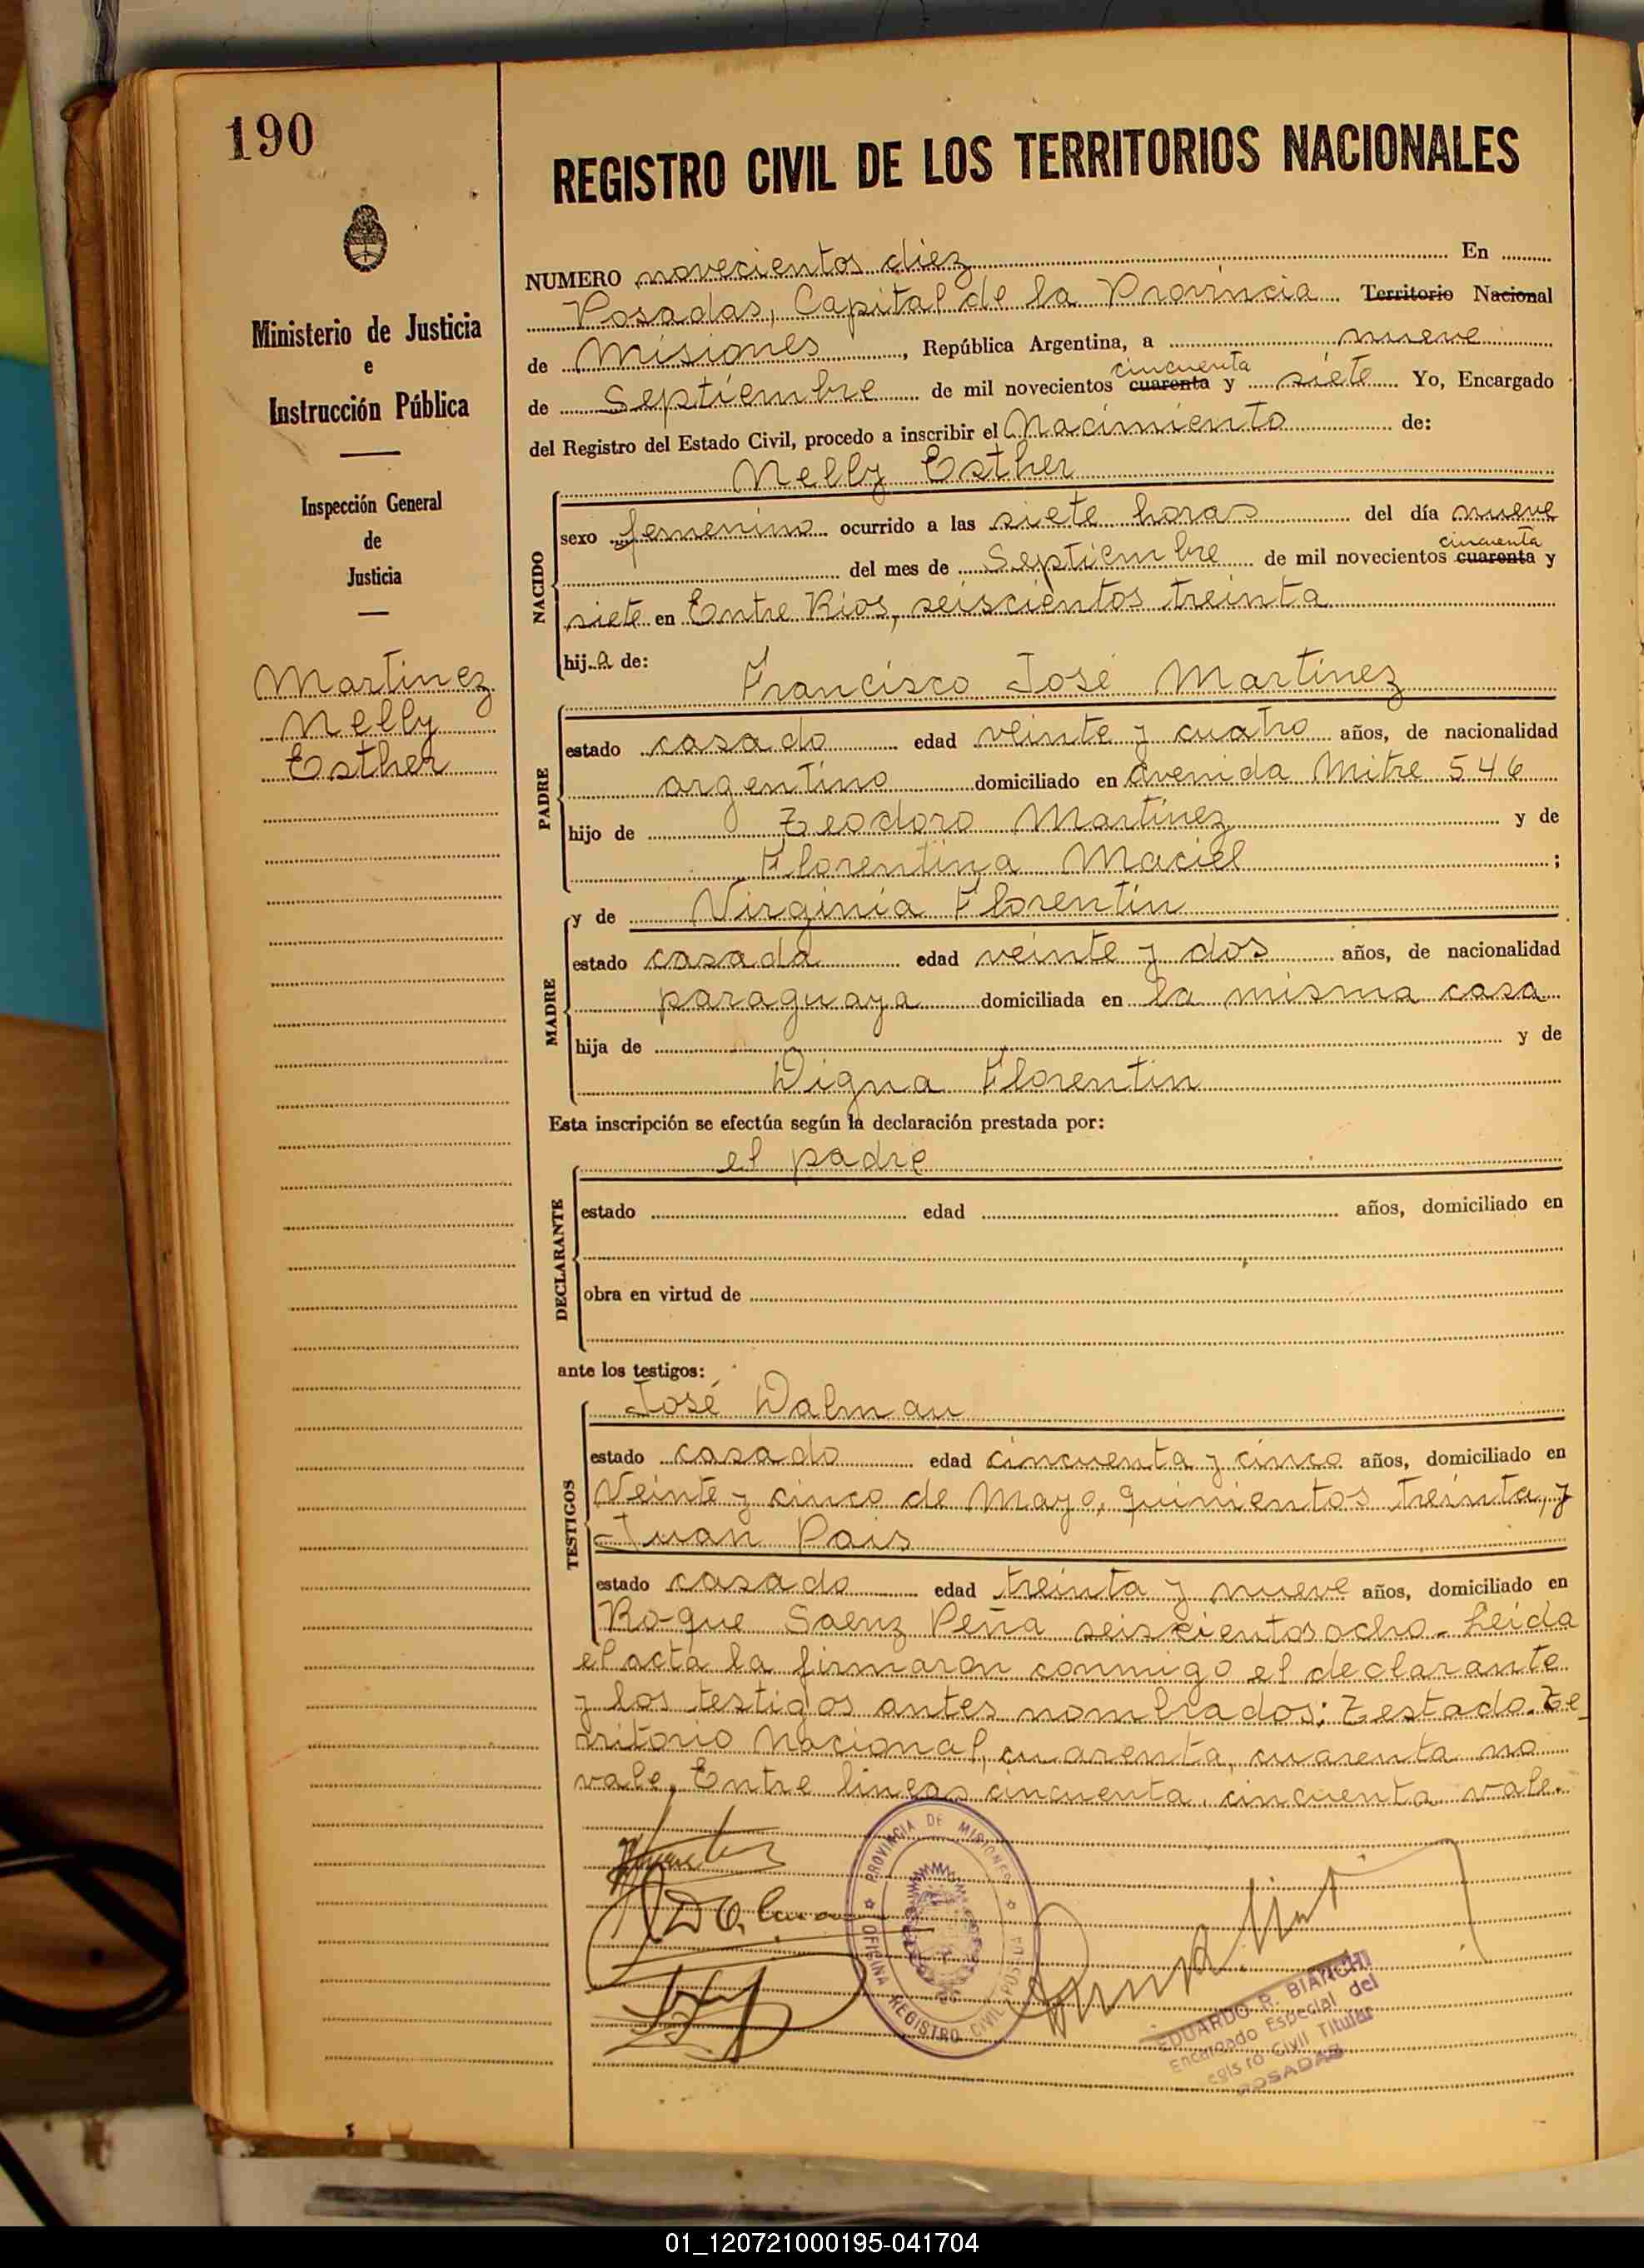 190
REGISTRO CIVIL DE LOS TERRITORIOS NACIONALES
Ministerio de Justicia
e
Instrucción Pública
Inspección General
de
Justicia
Martinez
Nelly
Esther
NUMERO novecientos diez En
Posadas, Capital de la Provincia Territorio Nacional
de Misiones, República Argentina, a nueve
cincuenta
de Septiembre de mil novecientos cuarenta y siete Yo, Encargado
del Registro del Estado Civil, procedo a inscribir el Nacimiento de:
Nelly Esther
NACIDO
sexo femenino ocurrido a las siete horas del día nueve
cincuenta
del mes de Septiembre de mil novecientos cuarenta y
siete en Entre Rios, seiscientos treinta
hija de:
Francisco José Martínez
PADRE
estado casado edad veinte y cuatro años, de nacionalidad
argentino domiciliado en avenida Mitre 546
hijo de Teodoro Martínez y de
Florentina Maciel ;
y de Virginia Florentín
MADRE
estado casada edad veinte y dos años, de nacionalidad
paraguaya domiciliada en la misma casa
hija de y de
Digna Florentin
Esta inscripción se efectúa según la declaración prestada por:
el padre
DECLARANTE
estado edad años, domiciliado en
obra en virtud de
ante los testigos:
José Dalmau
TESTIGOS
estado casado edad cincuenta y cinco años, domiciliado en
Veinte y cinco de Mayo, quinientos treinta, y
Juan Pais
estado casado edad treinta y nueve años, domiciliado en
Roque Saenz Peña seiscientos ocho. Leida
el acta la firmaron conmigo el declarante
y los testigos antes nombrados: Testado. Te
rritorio Nacional, cuarenta, cuarenta no
vale. Entre lineas cincuenta, cincuenta vale.
PROVINCIA DE MISIONES
OFICINA REGISTRO CIVIL POSADAS
EDUARDO R. BIANCHI
Encargado Especial del
egis ro Civil Titular
POSADAS
01_120721000195-041704